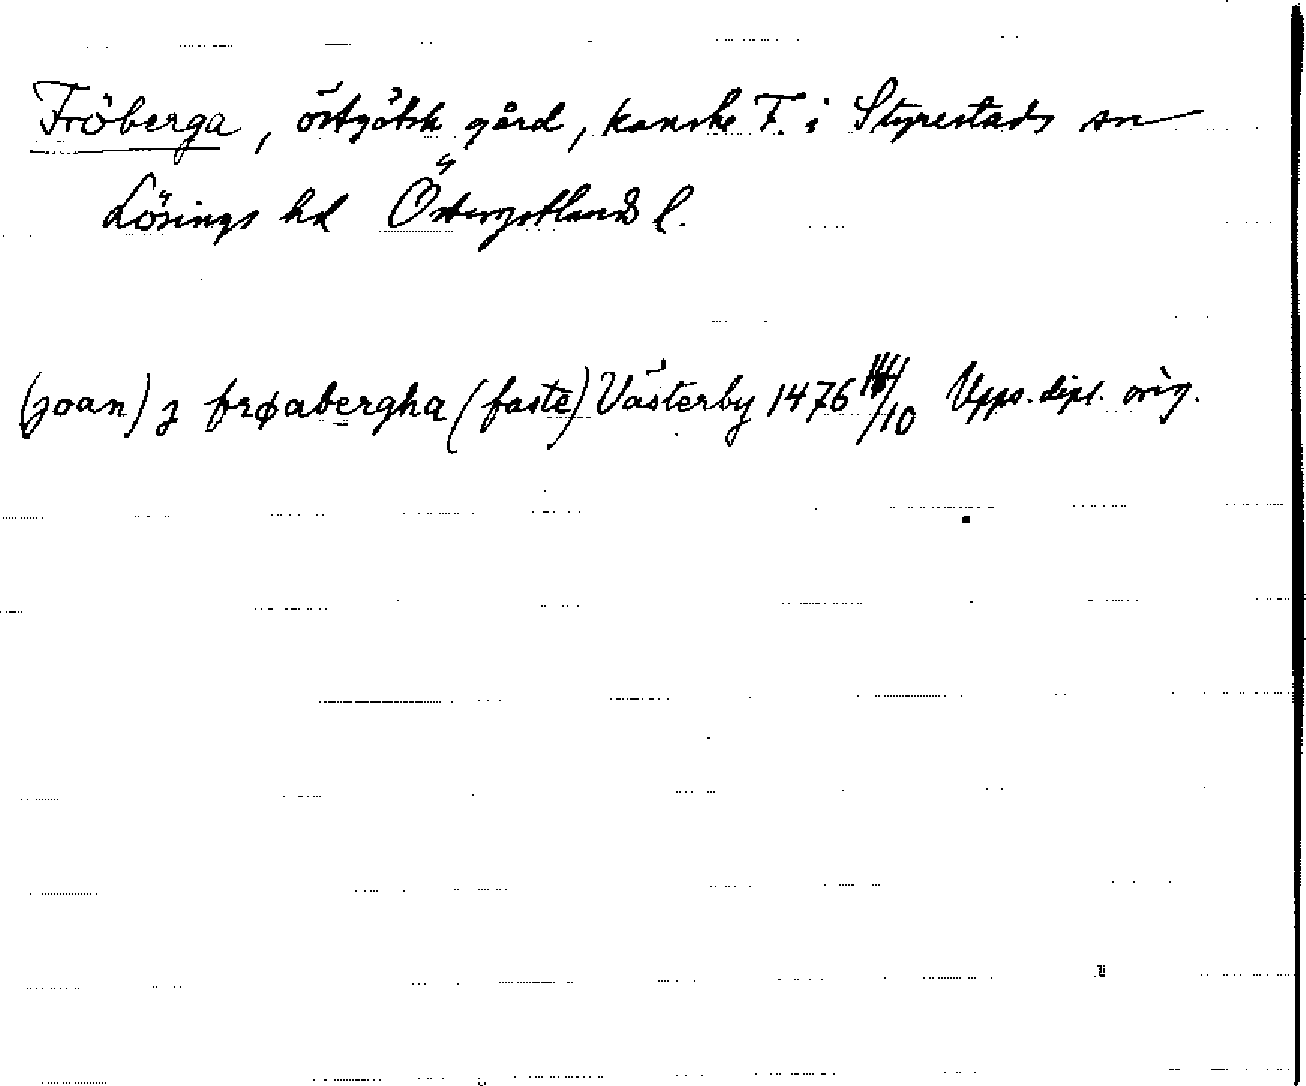 Fröberga, östgötsk gård, kanske F. i Styrestads sn
Lösings hd Östergötlands l.
(joan) j frøabergha (faste) Västerby 1476 /10 Upps. dipl. orig.